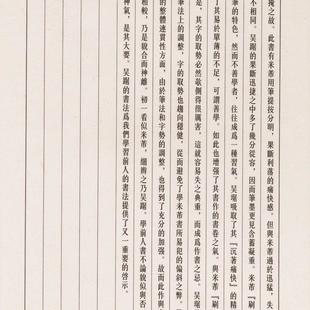 掩之故。此書有米芾用筆提按分明，果斷利落的痛快感。但與米芾過於迅猛，失
不相同。吳踞的果斷迅捷之中多了幾分從容，因而筆墨更見含蓄凝重。米芾『刷
筆的特色，然而不善學者，往往成爲一種習氣。吳踞吸取了其『沉著痛快』的精
了其易於單薄的不足，可謂善學。如此也增强了其書作的書卷之氣。與米芾『刷
是，其字的取勢必然欹側得很厲害，這就容易失之典重，而成爲作書之忌。吳踞
筆法上的調整，字的取勢也趨向穩健，從而避免了學米芾書所易犯的偏斜之弊。
的整體連貫性方面，由於筆法和字勢的調整，也得到了充分的加强。故而此作與
相較，乃是貌合而神離。初一看似米芾，細辨之乃吳踞。學前人書不論貌似與否
神氣，是其大要。吳踞的書法爲我們學習前人的書法提供了又一重要的啓示。